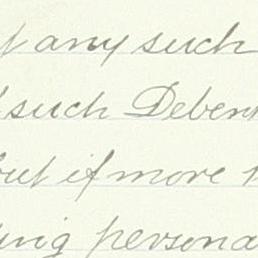 any such
such Deben
but if more
ing persona